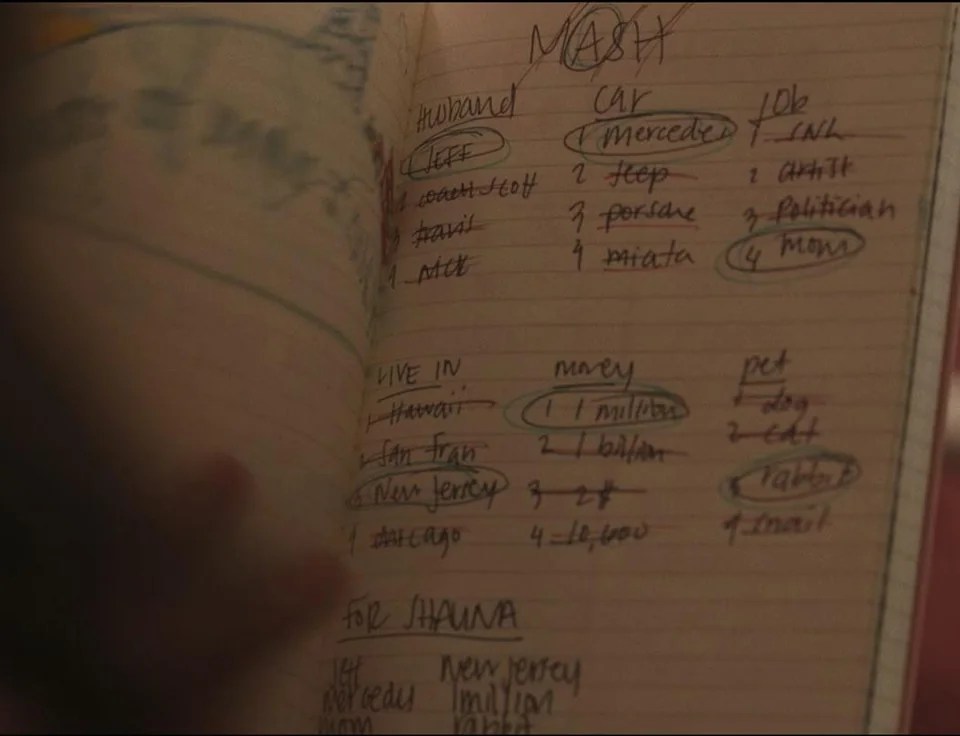 MASH
Husband
1 JEFF
2 coach scott
3 travis
4 NICK
car
1 mercedes
2 Jeep
3 porsche
4 miata
Job
1 SNL
2 artist
3 Politician
4 mom
LIVE IN
1 Hawaii
2 San Fran
3 New Jersey
4 chicago
money
1 1 million
2 1 billion
3 2$
4 10,000
pet
1 dog
2 cat
3 rabbit
4 snail
FOR SHAUNA
Jeff New Jersey
mercedes 1 million
mom rabbit